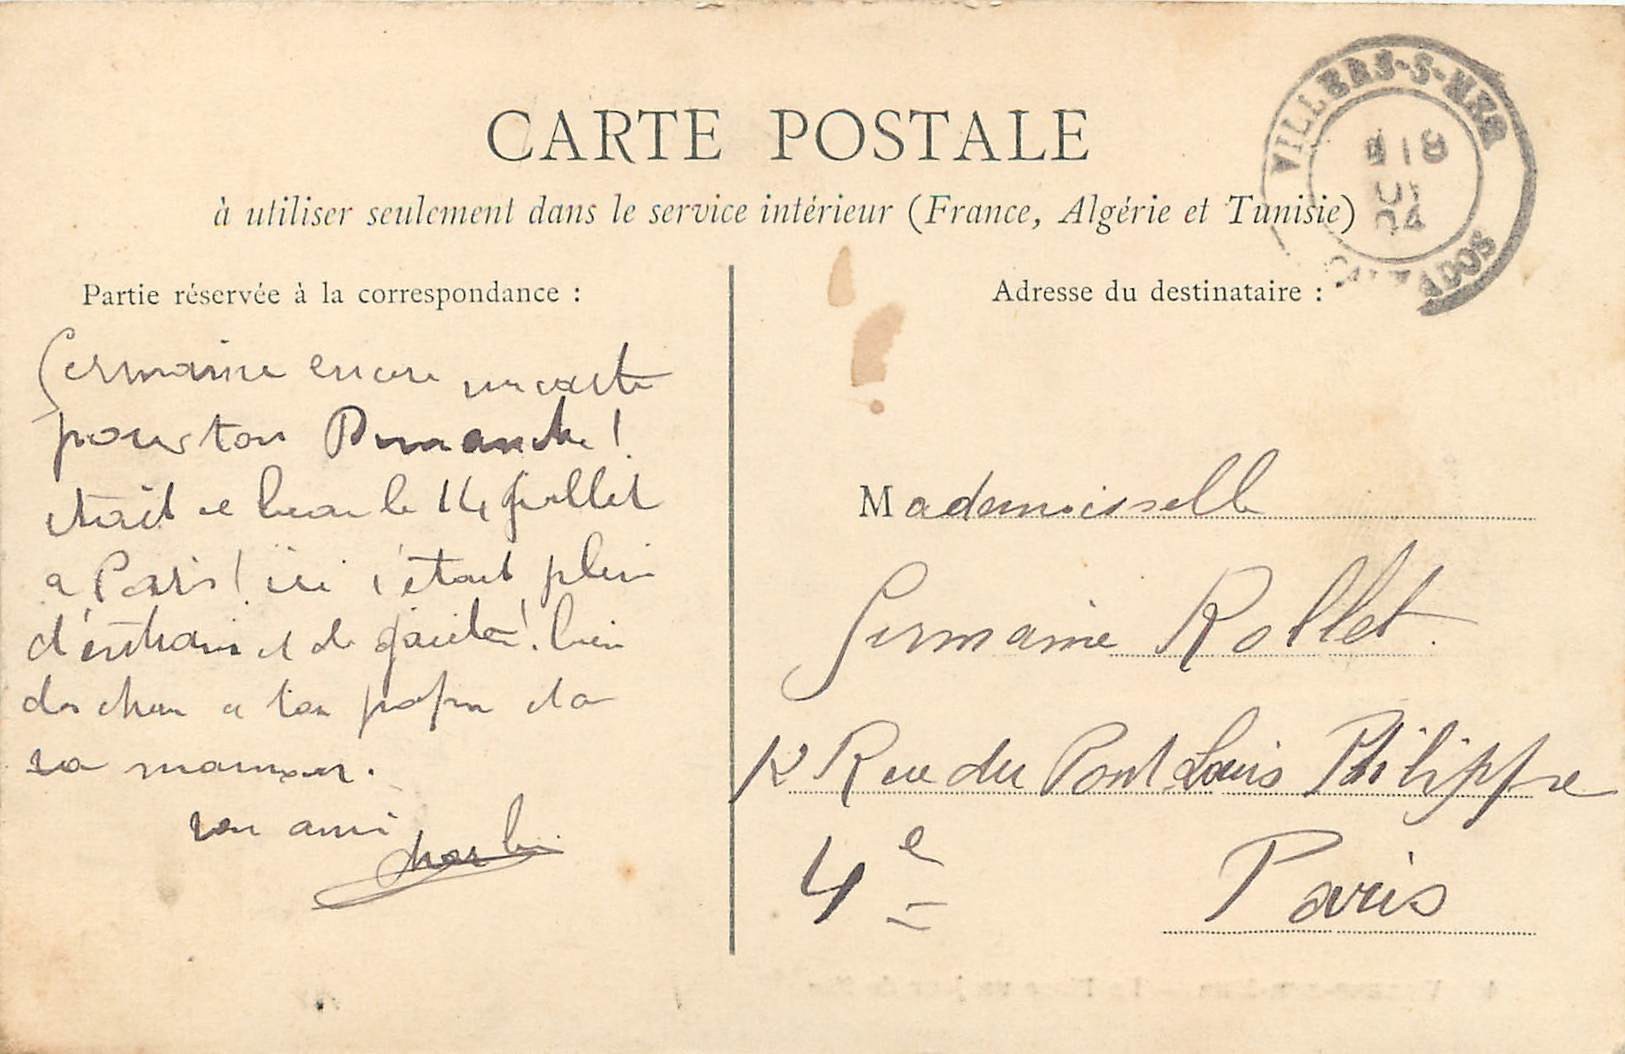 CARTE POSTALE
à utiliser seulement dans le service intérieur (France, Algérie et Tunisie)
VILLERS-S-MER
18
04
CALVADOS
Partie réservée à la correspondance :
Germaine encore une carte
pour ton Dimanche !
était ce beau le 14 Juillet
a Paris ! ici c'était plein
d'entrain et de gaieté ! bien
des chose a ton et a
ta maman.
ton ami
Adresse du destinataire :
Mademoiselle
Germaine Rollet.
12 Rue du Pont Louis Philippe
4e Paris